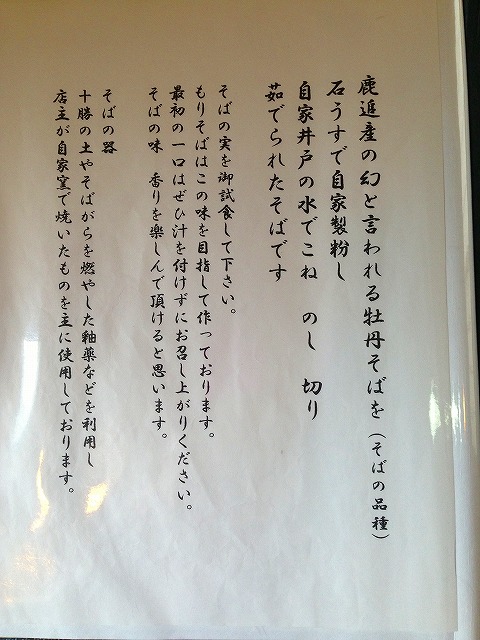 鹿追産の幻と言われる牡丹そばを（そばの品種）
石うすで自家製粉し
自家井戸の水でこね　のし　切り
茹でられたそばです
そばの実を御試食して下さい。
もりそばはこの味を目指して作っております。
最初の一口はぜひ汁を付けずにお召し上がりください。
そばの味　香りを楽しんで頂けると思います。
そばの器
十勝の土やそばがらを燃やした釉薬などを利用し
店主が自家窯で焼いたものを主に使用しております。